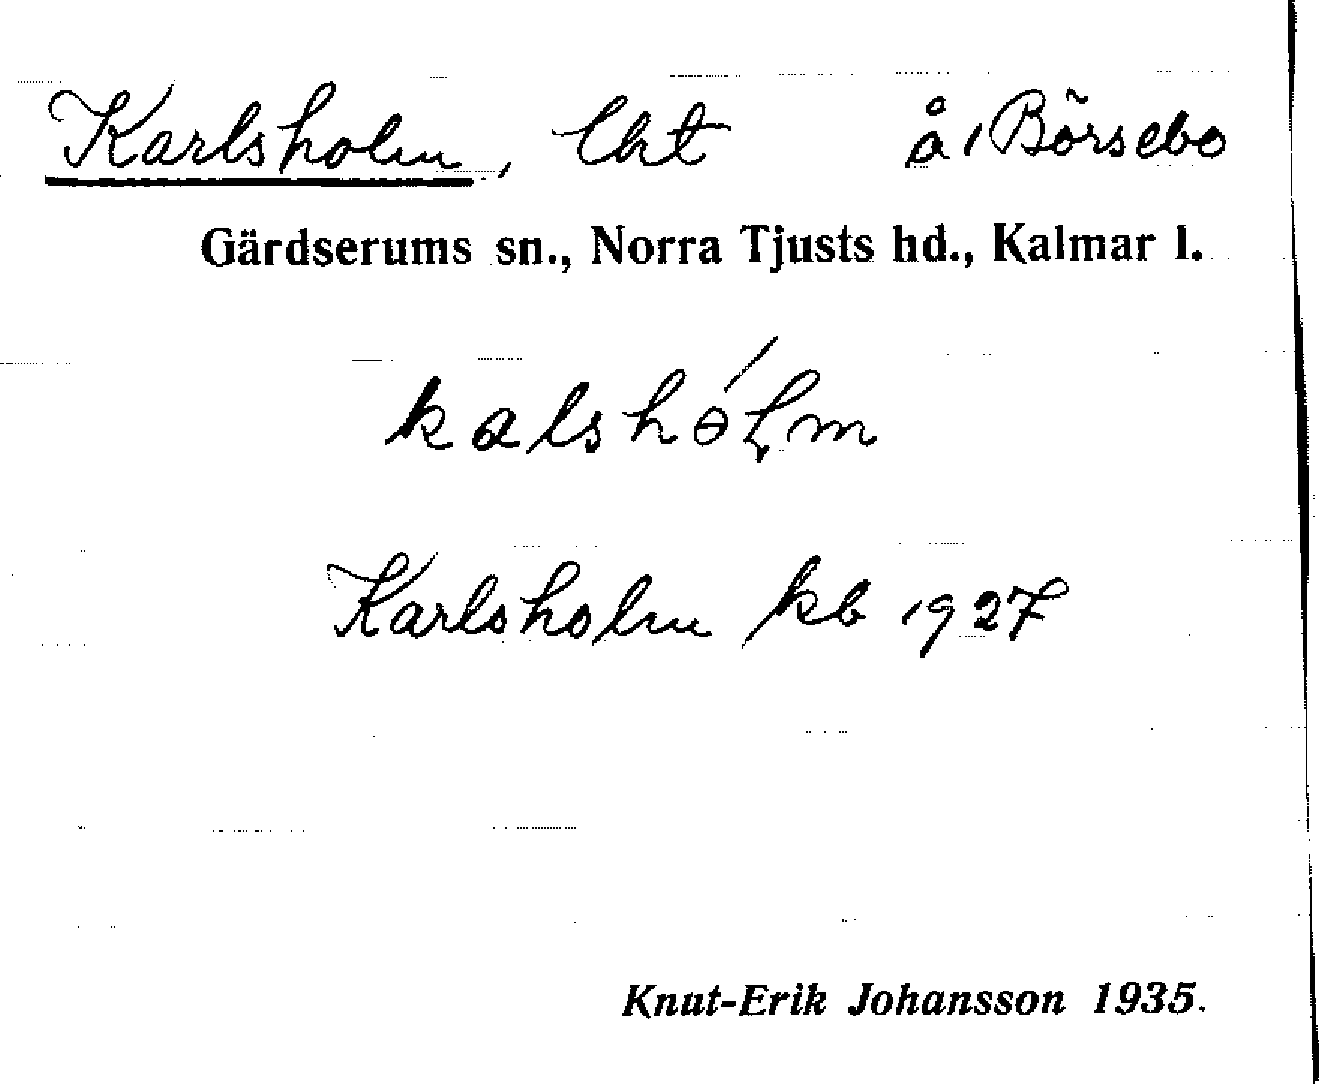 Karlsholm, lht å 1 Börsebo
Gärdserums sn., Norra Tjusts hd., Kalmar l.
kalshɵ́lm
Karlsholm kb 1927
Knut-Erik Johansson 1935.